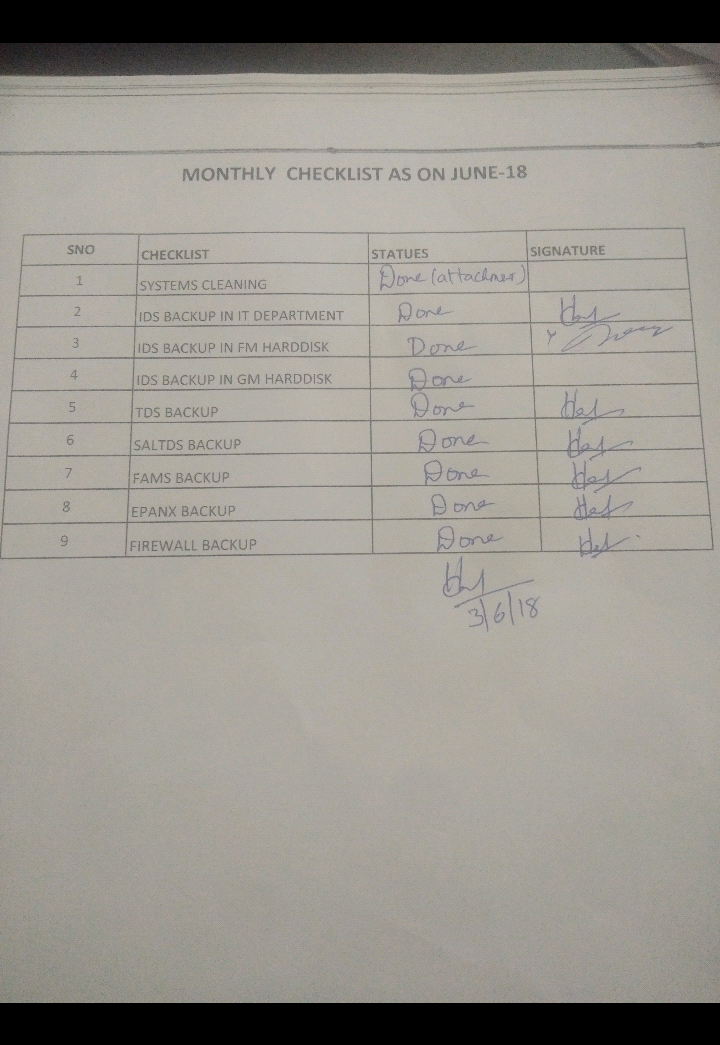 MONTHLY CHECKLIST AS ON JUNE-18
SNO CHECKLIST STATUES SIGNATURE
1 SYSTEMS CLEANING Done (attachner)
2 IDS BACKUP IN IT DEPARTMENT Done
3 IDS BACKUP IN FM HARDDISK Done
4 IDS BACKUP IN GM HARDDISK Done
5 TDS BACKUP Done
6 SALTDS BACKUP Done
7 FAMS BACKUP Done
8 EPANX BACKUP Done
9 FIREWALL BACKUP Done
3/6/18